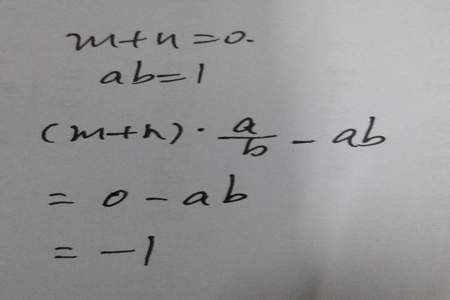 m+n=0.
ab=1
(m+n)·a/b-ab
=0-ab
=-1